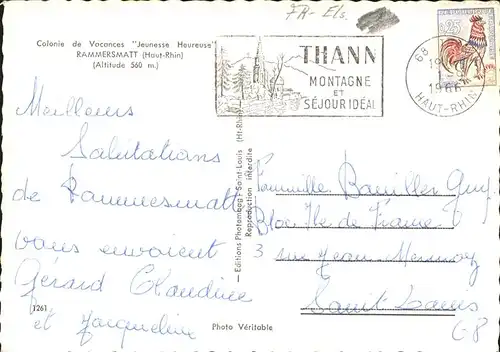 FR-Els.
Colonie de Vacances "Jeunesse Heureuse"
RAMMERSMATT (Haut-Rhin)
(Altitude 560 m.)
THANN
MONTAGNE
ET
SÉJOUR IDÉAL
68
1966
HAUT-RHIN
0,25
Meilleures
Salutations
de Rammersmatt
vous envoient
Gérard Claudine
et Jacqueline
1261
Editions Photomag, Saint-Louis (Ht-Rhin)
Reproduction interdite
Famille Guy
Bloc Ile de France
3 rue Jean Mermoz
Saint Louis
68
Photo Véritable